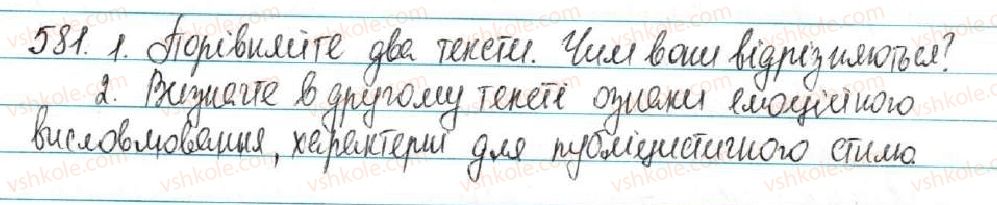 581. 1. Порівняйте два тексти. Чим вони відрізняються?
2. Визначте в другому тексті ознаки емоційного
висловлювання, характерні для публіцистичного стилю.